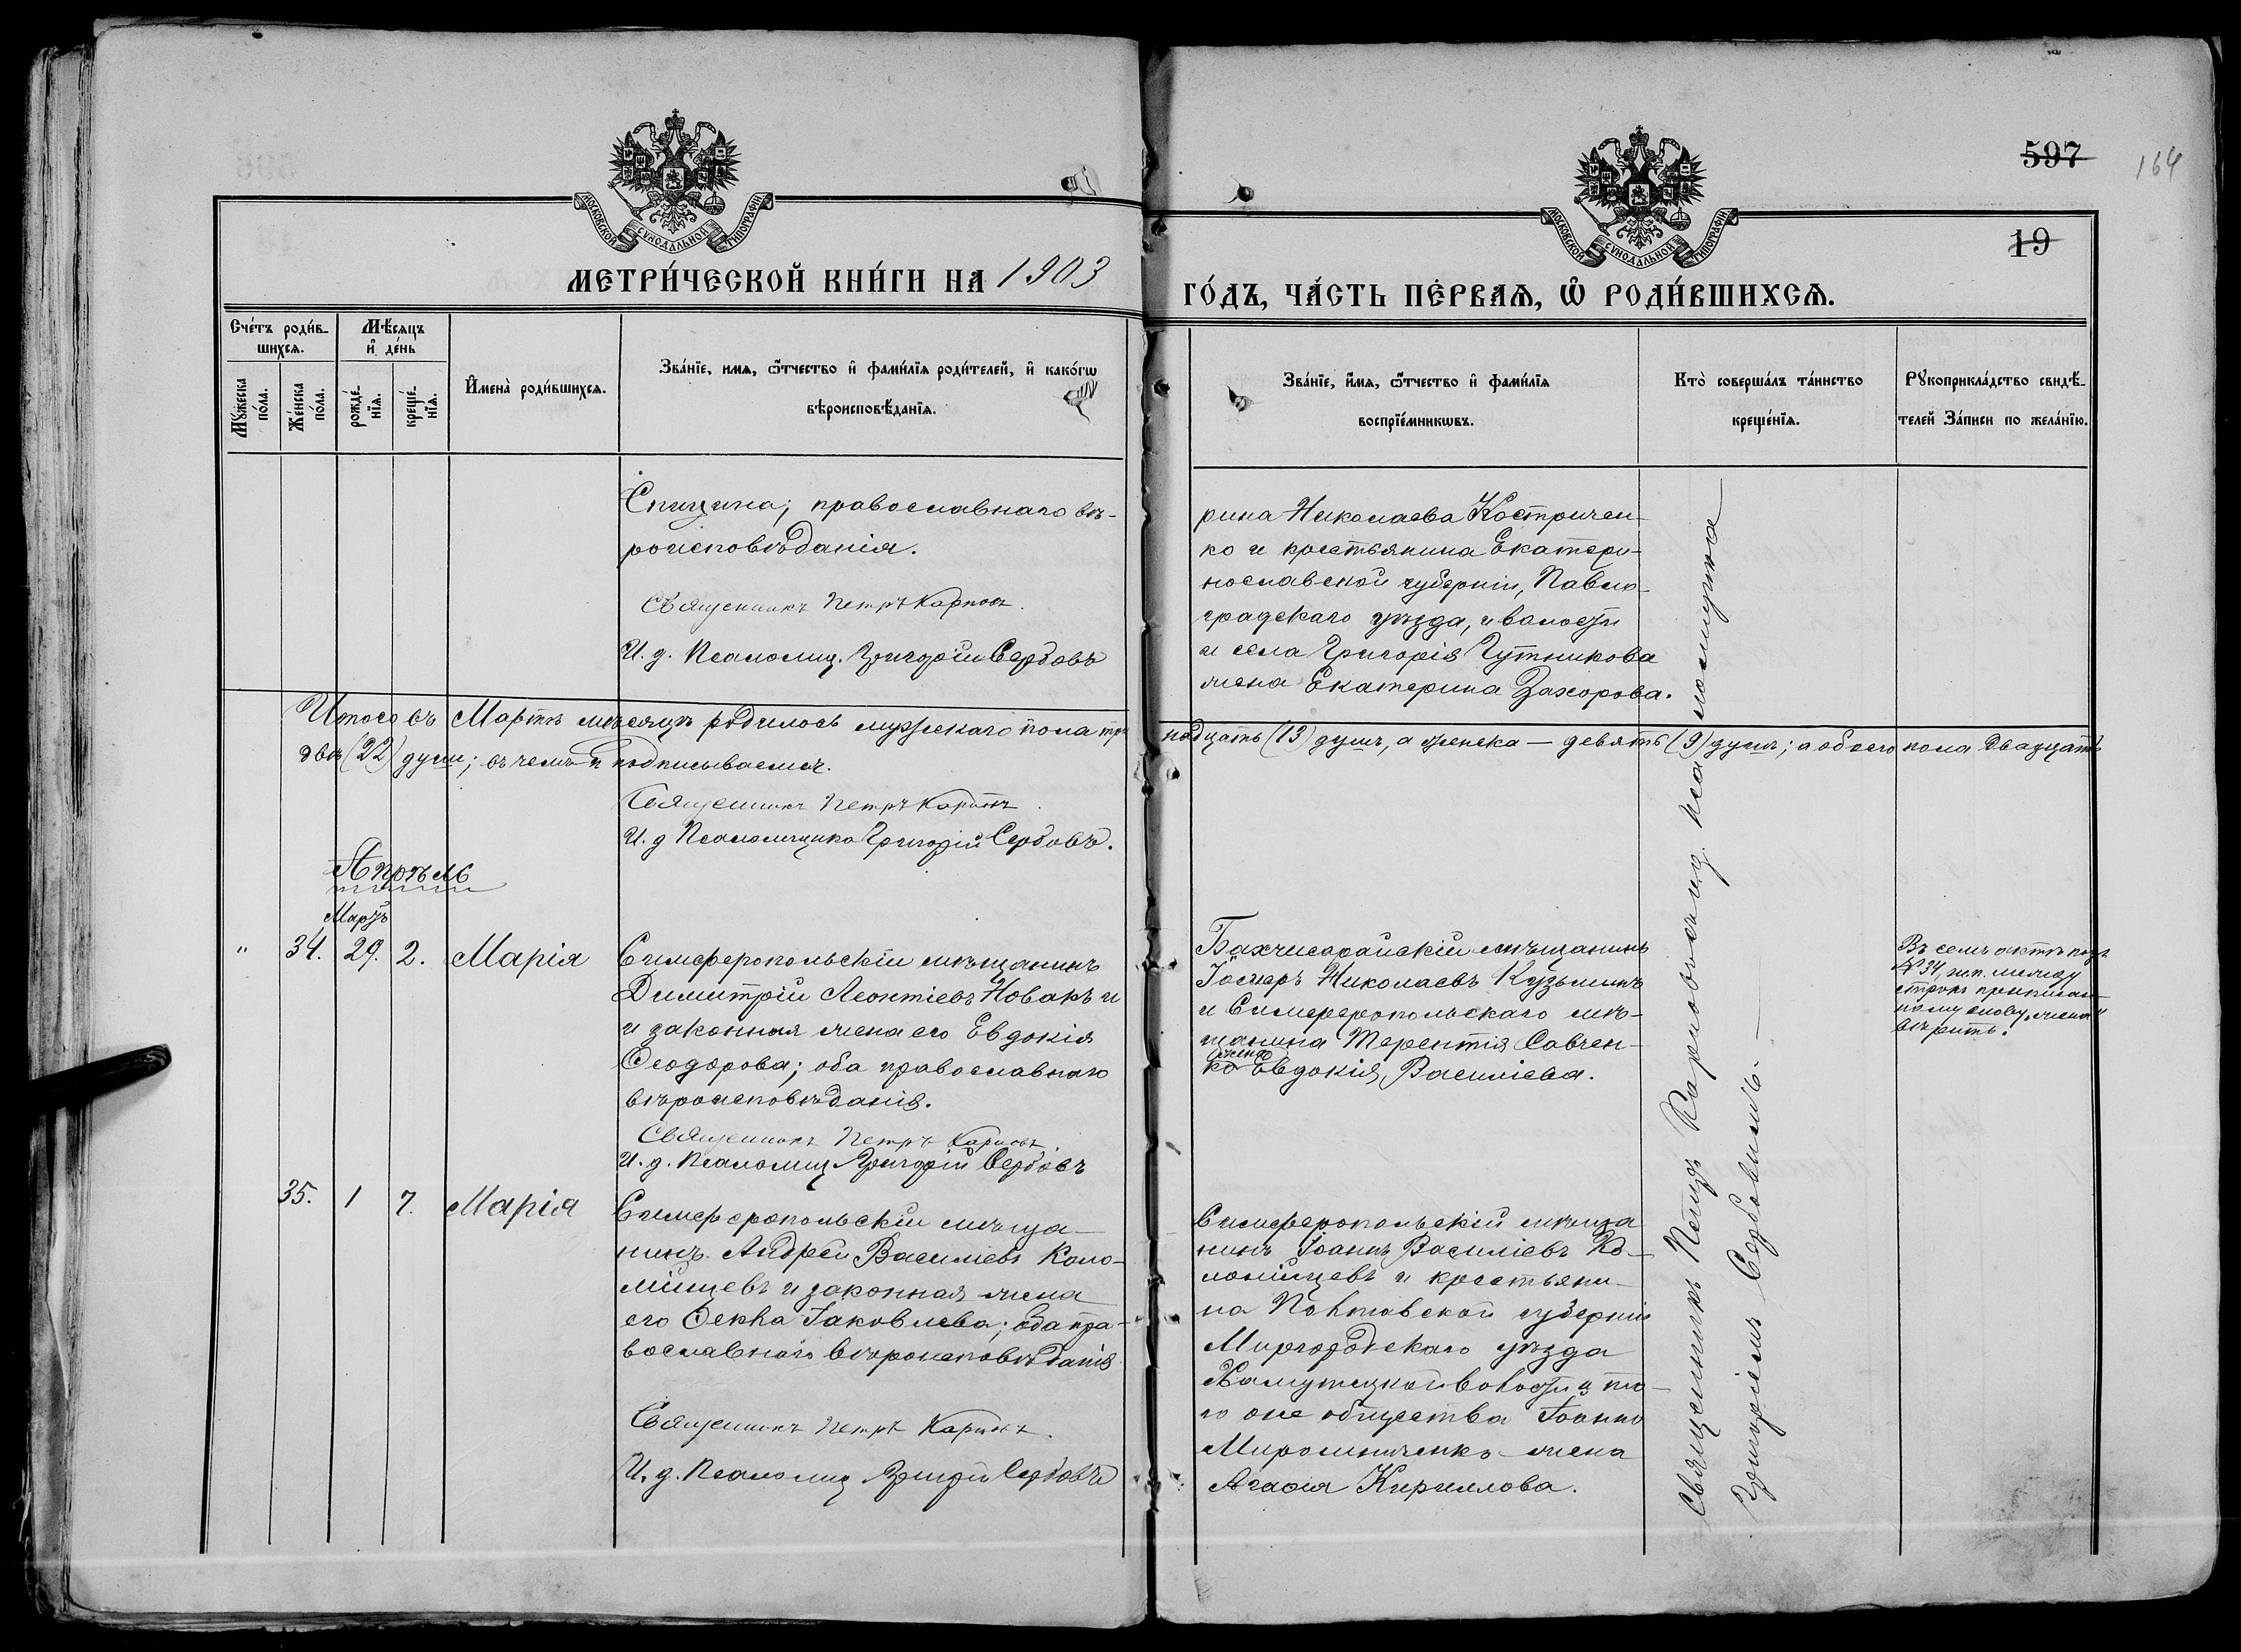 597
164
19
МОСКОВСКОЙ СѴНОДАЛЬНОЙ ТИПОГРАФІИ
МОСКОВСКОЙ СѴНОДАЛЬНОЙ ТИПОГРАФІИ
МЕТРИ́ЧЕСКОЙ КНИ́ГИ НА 1903
ГО́ДЪ, ЧА́СТЬ ПЕ́РВАѦ, Ѽ РОДИ́ВШИХСѦ.
Сче́тъ роди́в-
шихсѧ.
Мѣ́сѧцъ
и҆ де́нь
Мꙋ́жеска
по́ла.
Же́нска
по́ла.
рожде́-
нїѧ.
креще́-
нїѧ.
И҆мена̀ роди́вшихсѧ.
Зва́нїе, имѧ, ѻ҆́тчество и҆ фами́лїѧ роди́телей, и҆ како́гѡ
вѣроисповѣ́данїѧ.
Зва́нїе, и҆́мѧ, ѻ҆́тчество и҆ фами́лїѧ
воспрїе́мникѡвъ.
Кто̀ соверша́лъ та́инство
креще́нїѧ.
Рꙋкоприкла́дство свидѣ́-
телей За́писи по жела́нїю.
Спицина; православнаго вѣ-
роисповѣданія.
Священникъ Петръ Карповъ.
И. д. Псаломщ. Григорій Сербовъ
рина Николаева Костричен-
ко и крестьянина Екатери-
нославской губерніи, Павло-
градскаго уѣзда, и волости
и села Григорія Гутникова
жена Екатерина Захорова.
Итого въ Мартѣ мѣсяцѣ родилось мужескаго пола три
надцать (13) душъ, а женска — девять (9) душъ; а обоего пола двадцать
двѣ (22) души; въ чемъ и подписываемся.
Священникъ Петръ Карповъ.
И. д Псаломщика Григорій Сербовъ.
Апрѣль
Мартъ
" 34. 29. 2. Марія
Симферопольскій мѣщанинъ
Димитрій Леонтіевъ Новакъ и
и законная жена его Евдокія
Ѳеодорова; оба православнаго
вѣроисповѣданія.
Священникъ Петръ Карповъ
И. д. Псаломщ Григорій Сербовъ
Бахчисарайскій мѣщанинъ
Николаевъ Кузьминъ
и Симферопольскаго мѣ-
щанина Терентія Савчен-
жена
ко Евдокія Василіева.
Въ семъ актѣ подъ
№ 34, ж.п. между
строкъ приписан-
ному слову „жена"
вѣрить.
35. 1 7. Марія
Симферопольскій мѣща-
нинъ Андрей Василіевъ Коло-
мійцевъ и законная жена
его Ѳекла Іаковлева; оба пра-
вославнаго вѣроисповѣданія
Священникъ Петръ Карповъ.
И. д. Псаломщ Григорій Сербовъ
Симферопольскій мѣща
нинъ Іоаннъ Василіевъ Ко-
ломійцевъ и крестьяни-
на Полтовской губерніи
Миргородскаго уѣзда
Хамутецкой волости и то-
го же общества Іоанна
Мирошниченко жена
Агафія Кириллова.
Священникъ Петръ Карповъ съ и.д. псаломщика
Григоріемъ Сербовымъ.